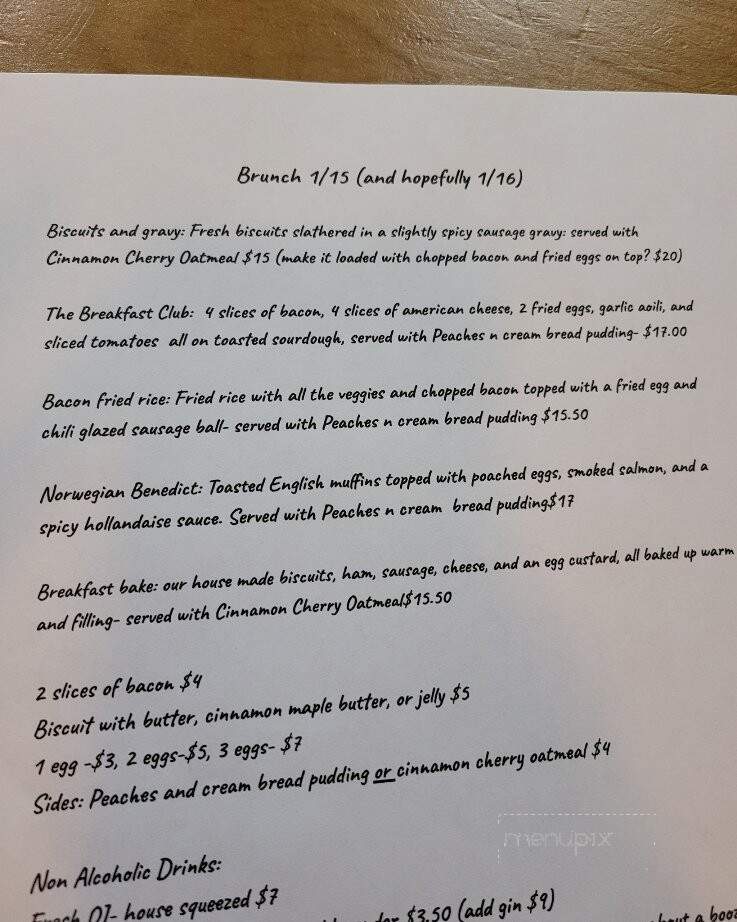 Brunch 1/15 (and hopefully 1/16)
Biscuits and gravy: Fresh biscuits slathered in a slightly spicy sausage gravy: served with
Cinnamon Cherry Oatmeal $15 (make it loaded with chopped bacon and fried eggs on top? $20)
The Breakfast Club: 4 slices of bacon, 4 slices of american cheese, 2 fried eggs, garlic aoili, and
sliced tomatoes all on toasted sourdough, served with Peaches n cream bread pudding- $17.00
Bacon fried rice: Fried rice with all the veggies and chopped bacon topped with a fried egg and
chili glazed sausage ball- served with Peaches n cream bread pudding $15.50
Norwegian Benedict: Toasted English muffins topped with poached eggs, smoked salmon, and a
spicy hollandaise sauce. Served with Peaches n cream bread pudding$17
Breakfast bake: our house made biscuits, ham, sausage, cheese, and an egg custard, all baked up warm
and filling- served with Cinnamon Cherry Oatmeal$15.50
2 slices of bacon $4
Biscuit with butter, cinnamon maple butter, or jelly $5
1 egg -$3, 2 eggs-$5, 3 eggs- $7
Sides: Peaches and cream bread pudding or cinnamon cherry oatmeal $4
menupix
Non Alcoholic Drinks:
Fresh OJ- house squeezed $7
$3.50 (add gin $9)
a